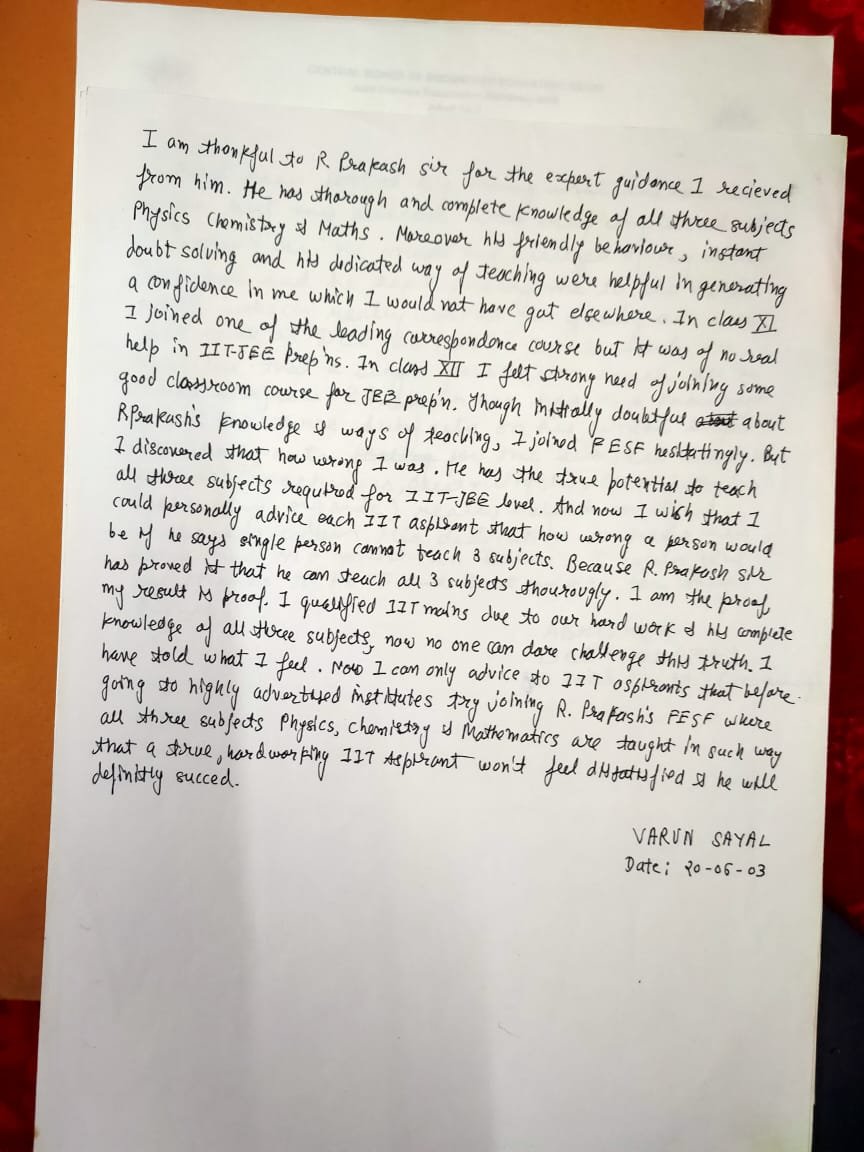 I am thankful to R Prakash sir for the expert guidance I recieved
from him. He has thorough and complete knowledge of all three subjects
Physics Chemistry & Maths. Moreover his friendly behaviour, instant
doubt solving and his dedicated way of teaching were helpful in generating
a confidence in me which I would not have got elsewhere. In class XI
I joined one of the leading correspondence course but it was of no real
help in IIT-JEE Prep'ns. In class XII I felt strong need of joining some
good classroom course for JEE prep'n. Though initially doubtful about
RPrakash's knowledge & ways of teaching, I joined PESF hesitatingly. But
I discovered that how wrong I was. He has the true potential to teach
all three subjects required for IIT-JEE level. And now I wish that I
could personally advice each IIT aspirant that how wrong a person would
be if he says single person cannot teach 3 subjects. Because R. Prakash sir
has proved it that he can teach all 3 subjects thourougly. I am the proof,
my result is proof. I qualified IIT mains due to our hard work & his complete
knowledge of all three subjects, now no one can dare challenge this truth. I
have told what I feel. Now I can only advice to IIT aspirants that before
going to highly advertised institutes try joining R. Prakash's PESF where
all three subjects Physics, Chemistry & Mathematics are taught in such way
that a true, hardworking IIT Aspirant won't feel disatisfied & he will
definitly succed.
VARUN SAYAL
Date: 20-06-03